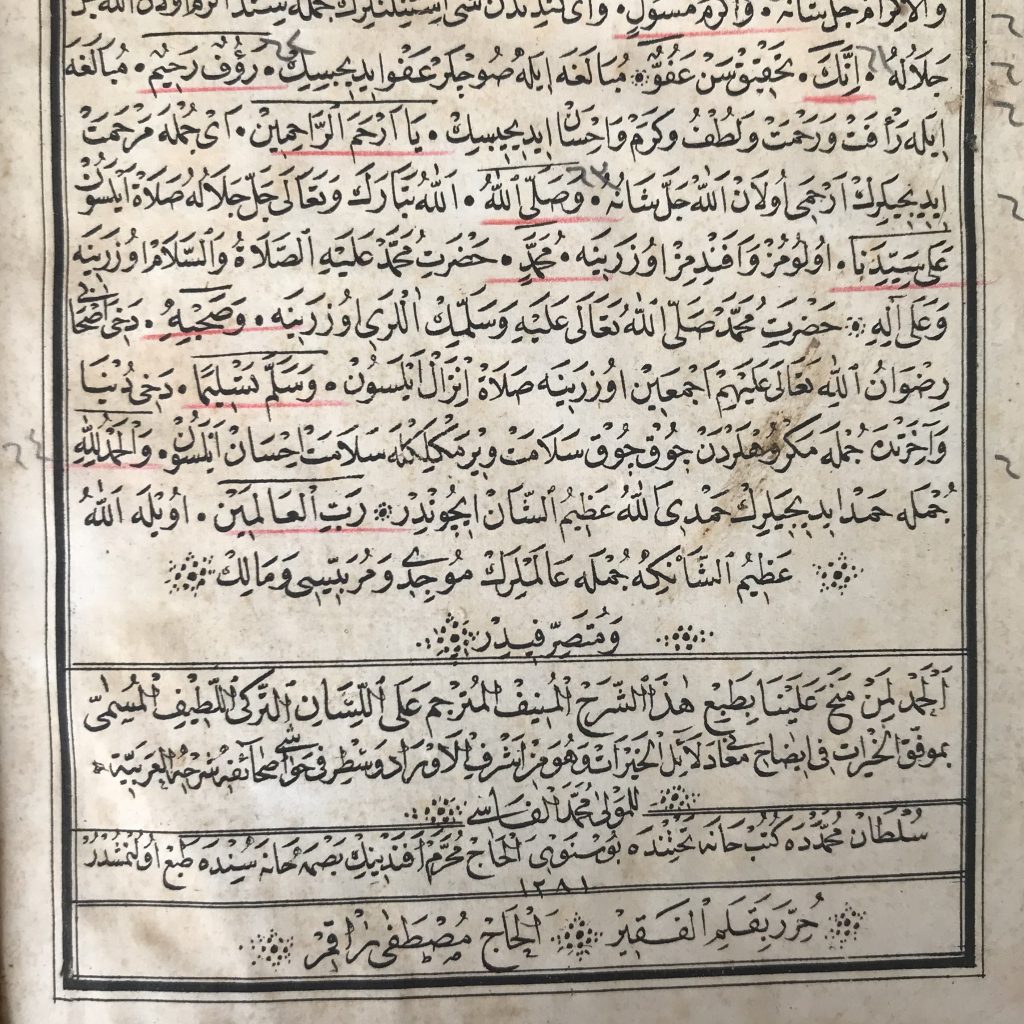 والاكرام جل شانه • واكرم مسؤل • واى كندیدن شى استنلنلرك جمله سندن اكرم اولان الله جل
جلاله • انك • تحقيق سن عفو ۞ مبالغه ايله صوچلر عفو ايديجيسك • رؤف رحيم • مبالغه
ايله رأفت ورحمت ولطف وكرم واحسان ايديجيسك • يا ارحم الراحمين • اى جمله مرحمت
ايديجيلرك ارحمى اولان الله جل شانه • وصلى الله • الله تبارك وتعالى جل جلاله صلاة ايلسون
على سيدنا • اولومز وافندمز اوزرينه • محمد • حضرت محمد عليه الصلاة والسلام اوزرينه
وعلى اله ۞ حضرت محمد صلى الله تعالى عليه وسلمك اللرى اوزرينه • وصحبه • دخى اصحابى
رضوان الله تعالى عليهم اجمعين اوزرينه صلاة انزال ايلسون • وسلم تسليما • دخى دنيا
وآخرتده جمله مكروهلردن چوق چوق سلامت ويرمكلكله سلامت احسان ايلسون • والحمد لله
جمله حمد ايديجيلرك حمدى الله عظيم الشان ايچوندر ۞ رب العالمين • اويله الله
عظيم الشانكه جمله عالملرك موجدى ومربيسى ومالك
ومتصرفيدر
الحمد لمن منح علينا بطبع هذا الشرح المنيف المترجم على اللسان التركى اللطيف المسمى
بموفق الخيرات فى ايضاح معانى دلائل الخيرات وهو من اشرف الاوراد وسطر فى حواشى صحائفه شرحه العربية
للمولى محمد الفاسى
سلطان محمدده كتبخانه تحتنده بوسنوى الحاج محرم افندينك بصمه خانه سنده طبع اولنمشدر
١٢٨١
حرر بقلم الفقير الحاج مصطفى راقم